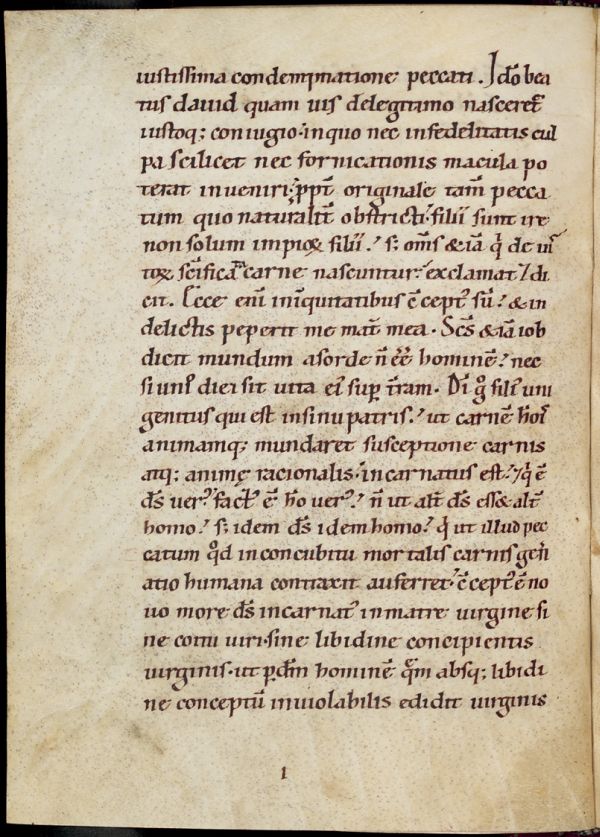 iustissima condempnatione peccati. Idõ bea
tus dauid quam uis delegitimo nasceret᷑
iustoq; coniugio· inquo nec infidelitatis cul
pa scilicet nec fornicationis macula po
terat inueniri· ꝓpt̄ originale tam̄ pecca
tum quo naturalit̄ obstricti· filii sunt ire
non solum impioꝝ filii? s; om̄s &iā q̇ de iu
toꝝ sc̄ificata carne nascuntur· exclamat ⁊ di
cit. Ecce eni᷑ iniquitatibus c̄ceptꝰ sū? & in
delictis peperit me mat᷑ mea. Sc̄s &iā iob
dicit mundum asorde n̄ eē hominē? nec
si uniꝰ diei sit uita eiꝰ sup̱ t̄ram. Dī g̊ filiꝰ uni
genitus qui est insinu patris? ut carnē hoīs
animamq; mundaret susceptione carnis
atq; animę racionalis· incarnatus est? ⁊ q̇ ē
ds̄ uerꝰ factꝰ ē hō uerꝰ? n̄ ut alt᷑ ds̄ ess& alt᷑
homo? s; idem ds̄ idem homo? q̇ ut illud pec
catum qd̄ inconcubitu mortalis carnis gen̄
atio humana contraxit auferret· c̄ceptꝰ ē no
uo more ds̄ incarnatꝰ inmatre uirgine si
ne coitu uiri· sine libidine concipientis
uirginis· ut p̱ dm̄ hominē q̄m absq; libidi
ne conceptū inuiolabilis edidit uirginis
I